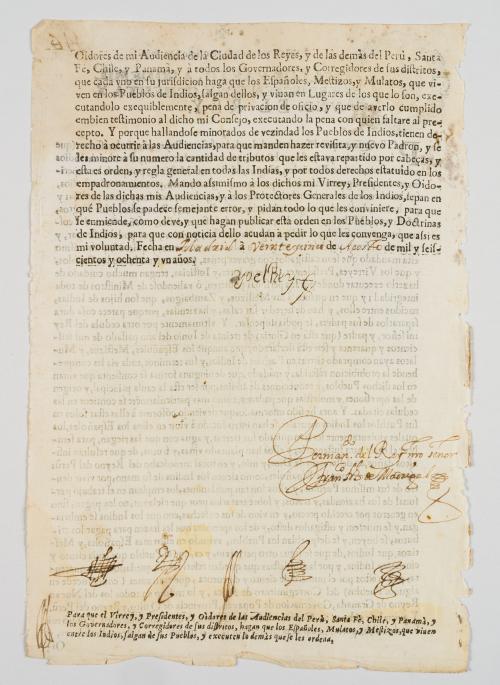 Oidores de mi Audiencia de la Ciudad de los Reyes, y de las demàs del Perù, Santa
Fè, Chile, y Panamà, y à todos los Governadores, y Corregidores de sus distritos,
que cada vno en su jurisdicion haga que los Españoles, Mestizos, y Mulatos, que vi-
ven en los Pueblos de Indios, salgan dellos, y viuan en Lugares de los que lo son, exe-
cutandolo exequiblemente, pena de privacion de oficio, y que de averlo cumplido
embien testimonio al dicho mi Consejo, executando la pena con quien faltare al pre-
cepto. Y porque hallandose minorados de vezindad los Pueblos de Indios, tienen de-
recho à ocurrir à las Audiencias, para que manden hazer revisita, y nuevo Padron, y se
les minore à su numero la cantidad de tributos que les estava repartido por cabeças, y
esta es orden, y regla general en todas las Indias, y por todos derechos estatuido en los
empadronamientos. Mando assimismo à los dichos mi Virrey, Presidentes, y Oido-
res de las dichas mis Audiencias, y à los Protectores Generales de los Indios, sepan en
què Pueblos se padece semejante error, y pidan todo lo que les conviniere, para que
se enmiende, como deve, y que hagan publicar esta orden en los Pueblos, y Doctrinas
de Indios, para que con noticia dello acudan à pedir lo que les convenga, que assi es
mi voluntad. Fecha en Madrid à Veinte y uno de Agosto de mil y seis-
cientos y ochenta y vn años.
Yo el Rey
Por man.do del Rey nro señor
Fran.co de Madrigal
Para que el Virrey, y Presidentes, y Oidores de las Audiencias del Perù, Santa Fè, Chile, y Panamà, y
los Governadores, y Corregidores de sus distritos, hagan que los Españoles, Mulatos, y Mestizos, que viuen
entre los Indios, salgan de sus Pueblos, y executen lo demàs que se les ordena.